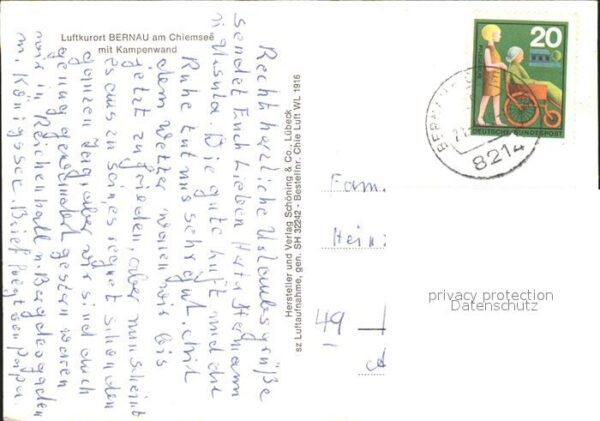 Luftkurort BERNAU am Chiemsee
mit Kampenwand
Recht herzliche Urlaubsgrüße
sendet Euch Lieben Hermann
u. Ursula. Die gute Luft und die
Ruhe tut uns sehr gut. Mit
dem Wetter waren wir bis
jetzt zufrieden, aber nun scheint
es aus zu sein, es regnet schon den
ganzen Tag, aber wir sind auch
genug gewandert gestern waren
wir in Reichenhall u. Berchtesgaden
u. Königssee. Brief folgt den Papa.
Hersteller und Verlag Schöning & Co., Lübeck
sz Luftaufnahme, gen. SH 32242 - Bestellnr. Chie Luft WL 1916
20
DEUTSCHE BUNDESPOST
BERNAU
8214
Fam.
Hein
49
privacy protection
Datenschutz